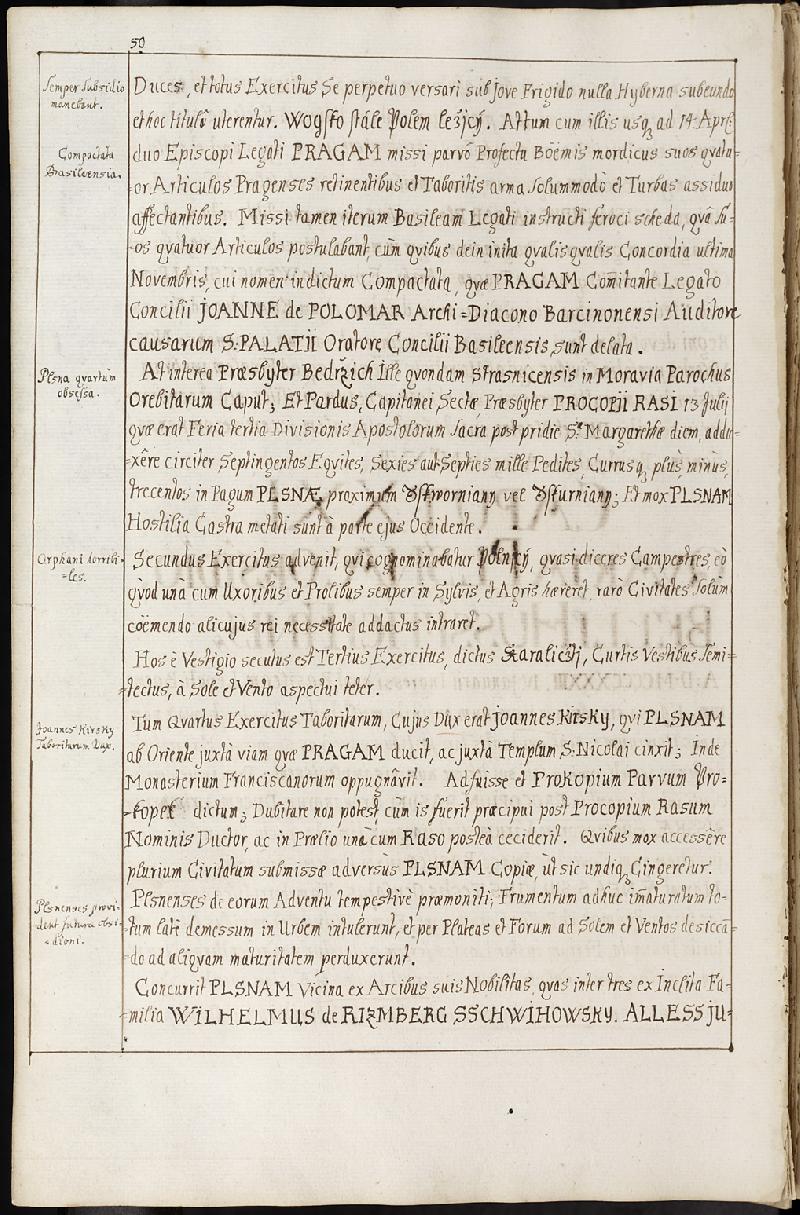 50
Semper Subsidio
manebant.
Duces, et totus Exercitus Se perpetuo versari sub Jove Frigido nulla Hyberna subeundo
et hoc titulô uterentur. Wogsko stále Polem ležjcý. Actum cum illis usq, ad 14 April
Compactata
Basileensia.
duo Episcopi Legati PRAGAM missi parvô Profectu Böemis mordicus suos qvatu-
-or Articulos Pragenses retinentibus et Taboritis arma Solummodò et Turbas assiduè
affectantibus. Missi tamen iterum Basileam Legati instructi feroci scheda, qvâ Su-
-os qvatuor Articulos postulabant, cùm qvibus dein inita qvalisqvalis Concordia ultima
Novembris, cui nomen indictum Compactata, qvæ PRAGAM Comitante Legato
Concilii JOANNE de POLOMAR Archi-Diacono Barcinonensi Auditore
causarum S. PALATII Oratore Concilii Basileensis, sunt delata.
Plsna qvartùm
obsessa.
At interea Præsbyter Bedržich Ille qvondam Strasnicensis in Moravia Parochus
Orebitarum Caput; Et Pardus, Capitanei Sectæ Præsbyter PROCOPJI RASI 13 Julij
qvæ erat Feria tertia Divisionis Apostolorum Sacra post pridie Sæ Margarethæ diem, addu-
-xêre circiter Septingentos Eqvites, Sexies aut Septies mille Pedites, Currusq, plùs minùs,
trecentos in Pagum PLSNÆ proximum vel Et mox PLSNAM
Hostilia Castra metati sunt à parte ejus Occidente.
Orphani horribi-
-les.
Secundus Exercitus advenit, qvi cognominabatur Polnjcý, qvasi diceres Campestres, eò
qvod unà cum Uxoribus et Prolibus semper in Sylvis, et Agris hæreret, rarò Civitates Solùm
coëmendo alicujus rei necessitate addactus intraret.
Hos è Vestigio secutus est Tertius Exercitus, dictus Curtis Vestibus Semi-
-tectus, à Sole et Vento aspectui teter.
Joannes Kirsky
Taboritarum Dux.
Tum Qvartus Exercitus Taboritarum, Cujus Dux erat Joannes Kirsky, qvi PLSNAM
ab Oriente juxtà viam qvæ PRAGAM ducit, ac juxtà Templum S. Nicolai cinxit; Inde
Monasterium Franciscanorum oppugnâvit. Adfuisse et Prokopium Parvum Pro-
-kopek dictum; Dubitare non potest, cùm is fuerit præcipui post Procopium Rasum
Nominis Ductor, ac in Prælio unà cum Raso posteà ceciderit. Qvibus mox accessêre
plurium Civitatum submissæ adversùs PLSNAM Copiæ, ùt sic undiq, Cingeretur.
Plsnenses provi-
-dent futuræ obsi-
-dioni.
Plsnenses de eorum Adventu tempestivè præmoniti, Frumentum adhuc imaturatum to-
-tum latè demessum in Urbem intulerunt, et per Plateas et Forum ad Solem et Ventos desiccâ-
-do ad aliqvam maturitatem perduxerunt.
Concurrit PLSNAM Vicina ex Arcibus suis Nobilitas, qvos inter tres ex Inclita Fa-
-milia WILHELMUS de RIZMBERG SSCHWIHOWSKY. ALLESS JU-